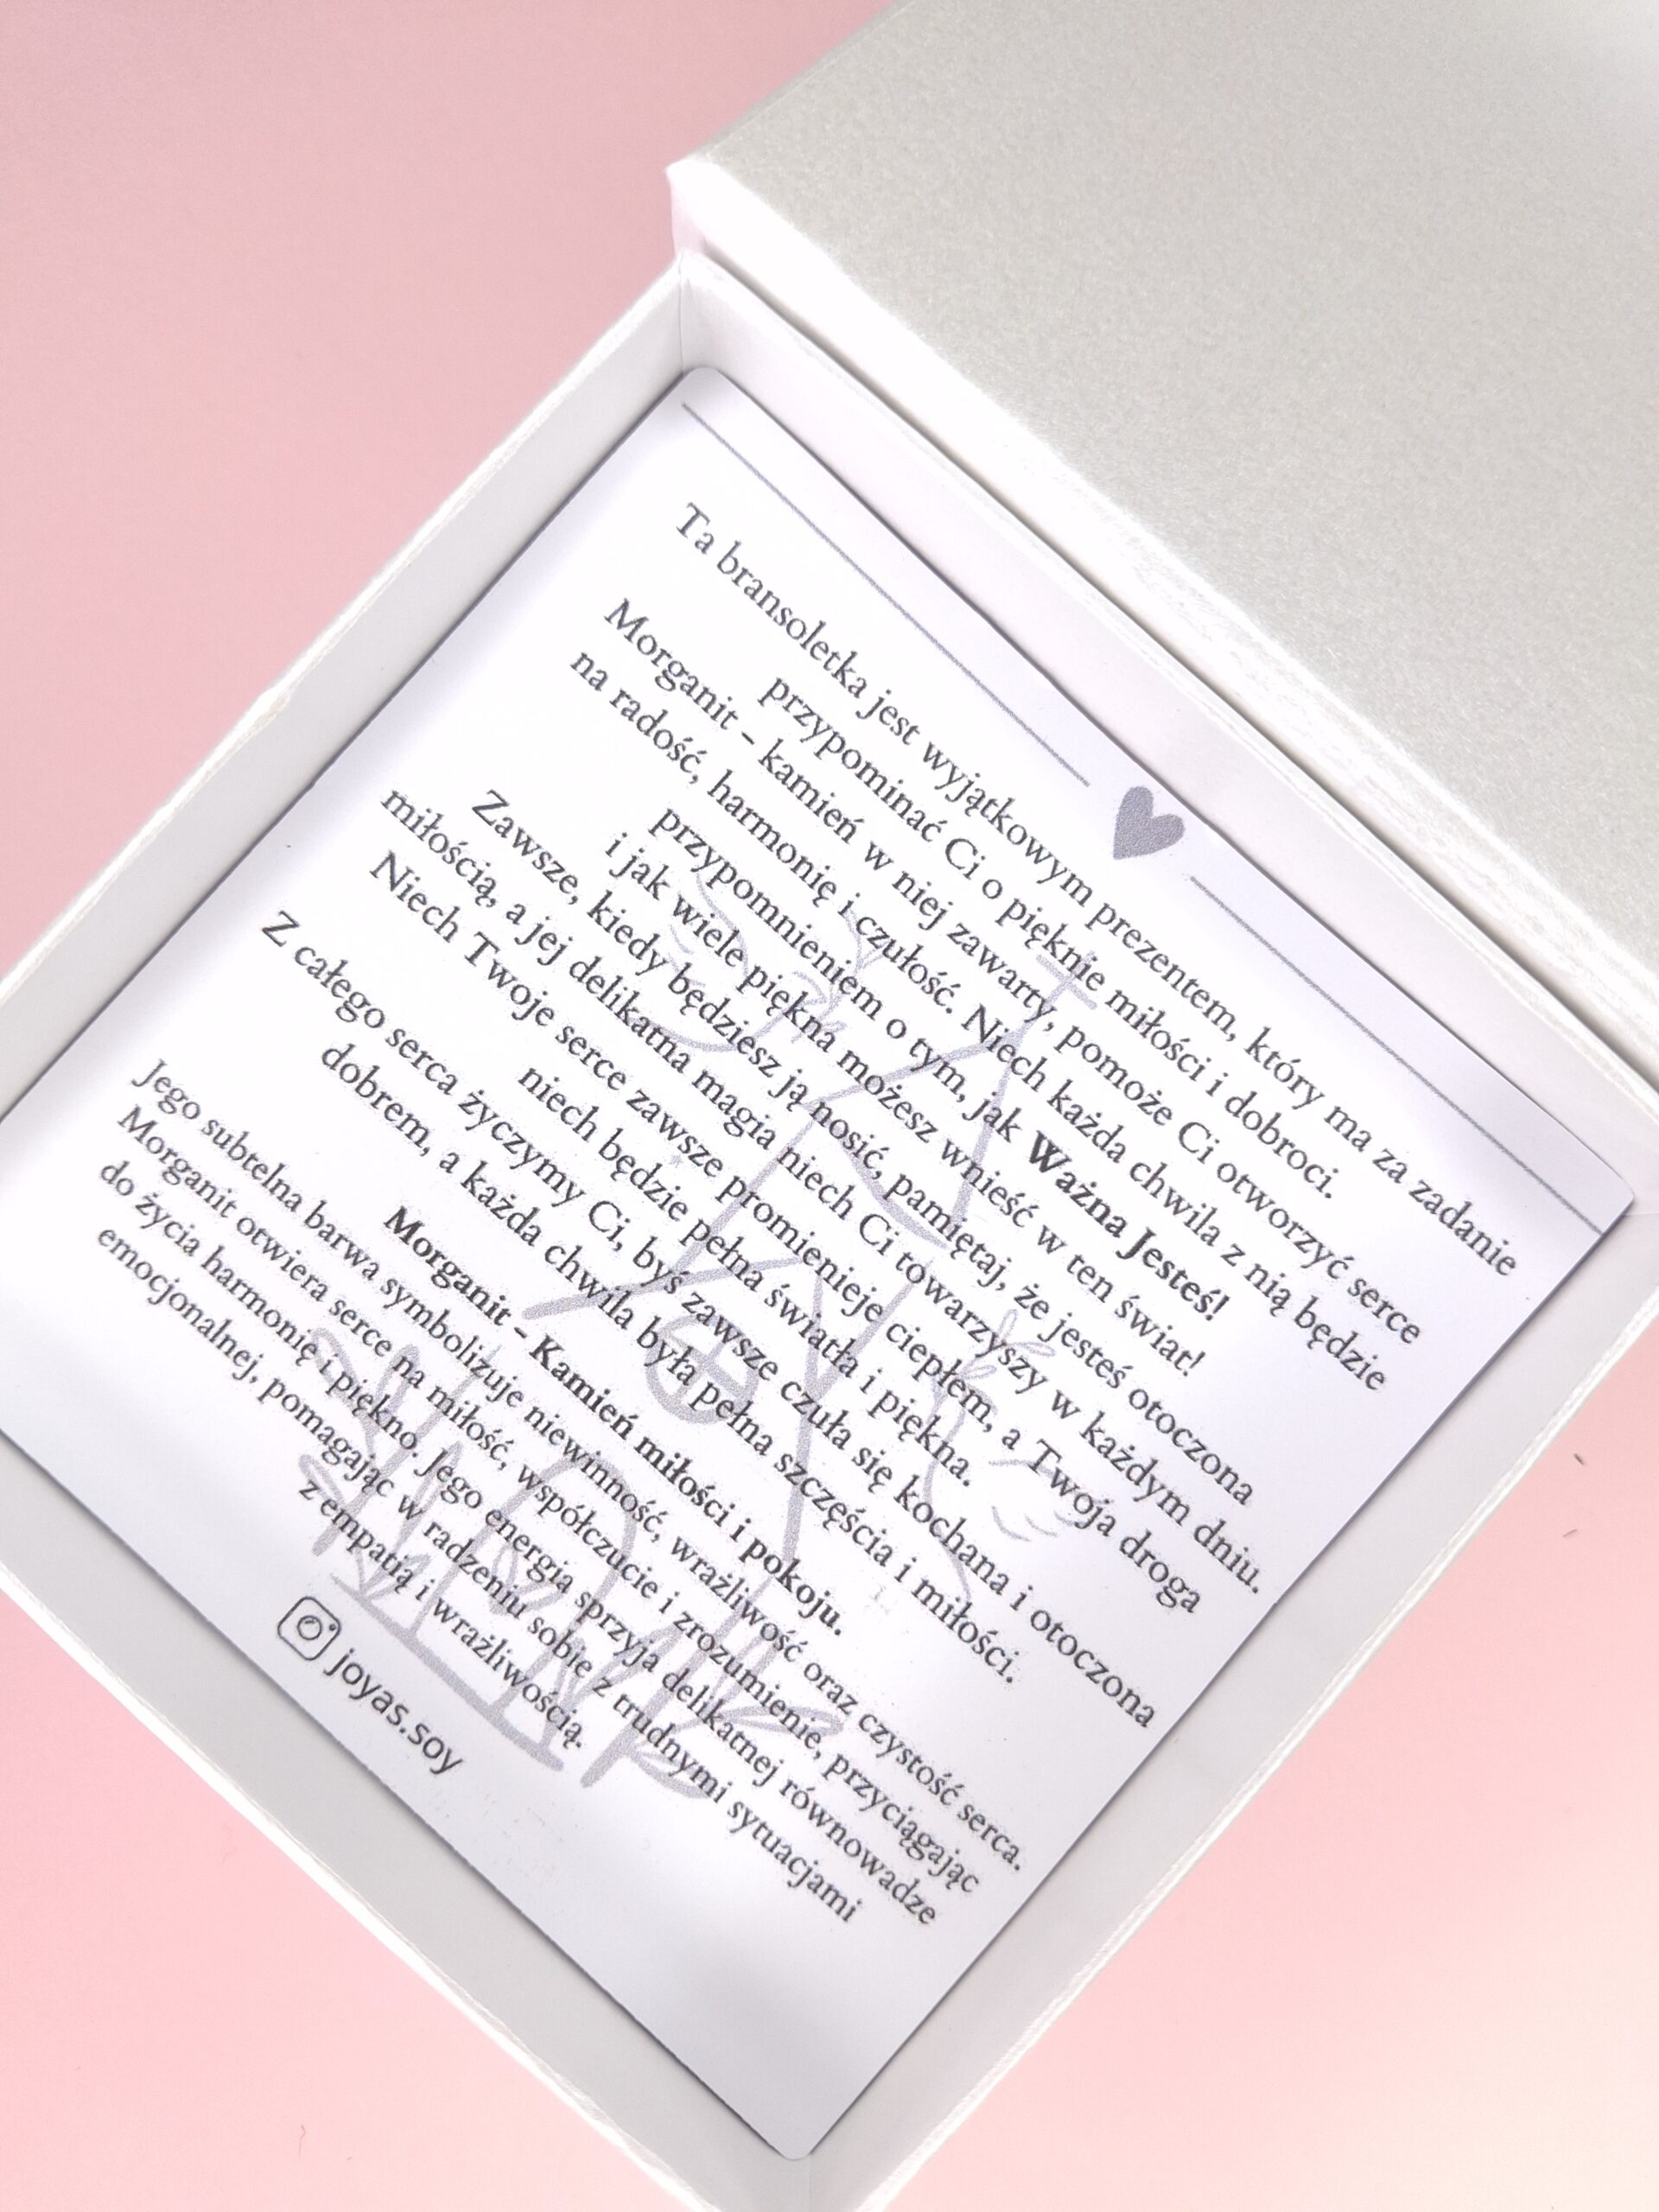 Ta bransoletka jest wyjątkowym prezentem, który ma za zadanie
przypominać Ci o pięknie miłości i dobroci.
Morganit - kamień w niej zawarty, pomoże Ci otworzyć serce
na radość, harmonię i czułość. Niech każda chwila z nią będzie
przypomnieniem o tym, jak Ważna Jesteś!
i jak wiele piękna możesz wnieść w ten świat!
Zawsze, kiedy będziesz ją nosić, pamiętaj, że jesteś otoczona
miłością, a jej delikatna magia niech Ci towarzyszy w każdym dniu.
Niech Twoje serce zawsze promienieje ciepłem, a Twoja droga
niech będzie pełna światła i piękna.
Z całego serca życzymy Ci, byś zawsze czuła się kochana i otoczona
dobrem, a każda chwila była pełna szczęścia i miłości.
Morganit - Kamień miłości i pokoju.
Jego subtelna barwa symbolizuje niewinność, wrażliwość oraz czystość serca.
Morganit otwiera serce na miłość, współczucie i zrozumienie, przyciągając
do życia harmonię i piękno. Jego energia sprzyja delikatnej równowadze
emocjonalnej, pomagając w radzeniu sobie z trudnymi sytuacjami
z empatią i wrażliwością.
joyas.soy